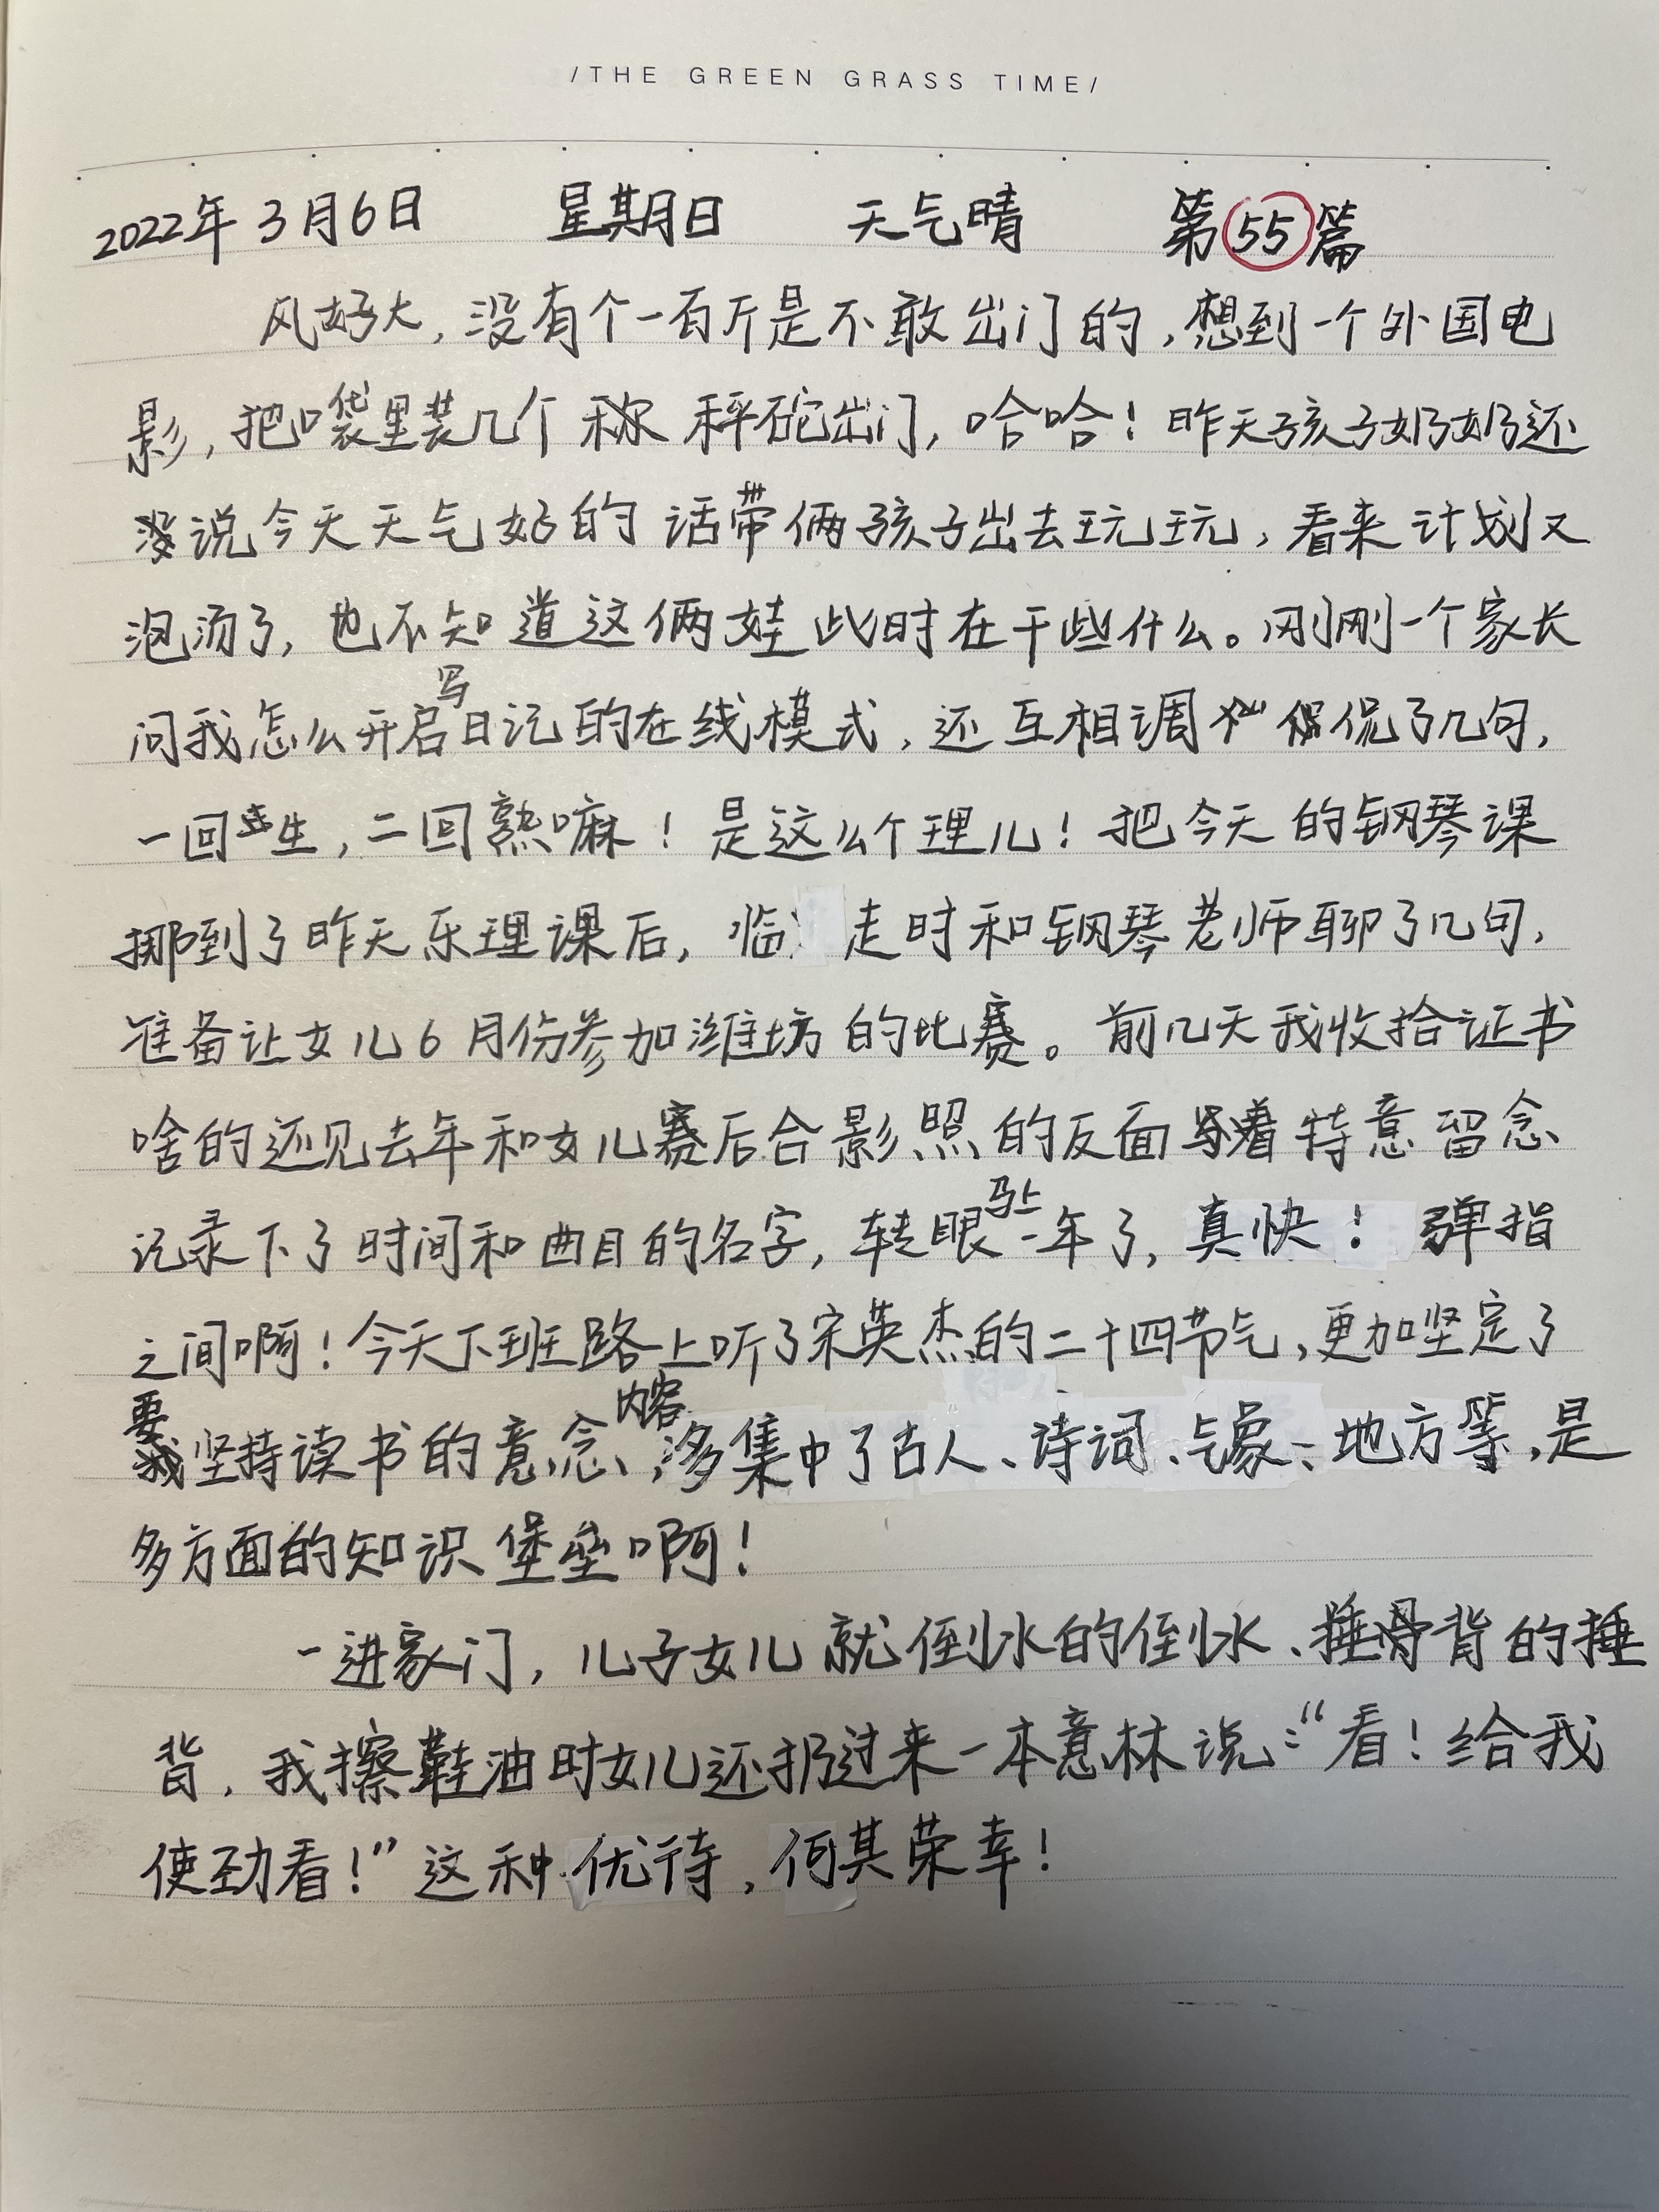 /THE GREEN GRASS TIME/
2022年3月6日 星期日 天气晴 第55篇
风好大,没有个一百斤是不敢出门的,想到一个外国电
影,把口袋里装几个秤砣出门,哈哈!昨天孩子奶奶还
说今天天气好的话带俩孩子出去玩玩,看来计划又
泡汤了,也不知道这俩娃此时在干些什么。刚刚一个家长
问我怎么开启写日记的在线模式,还互相调侃了几句,
一回生,二回熟嘛!是这么个理儿!把今天的钢琴课
挪到了昨天乐理课后,临走时和钢琴老师聊了几句,
准备让女儿6月份参加潍坊的比赛。前几天我收拾证书
啥的还见去年和女儿赛后合影照的反面写着特意留念
记录下了时间和曲目的名字,转眼马上一年了,真快!弹指
之间啊!今天下班路上听了宋英杰的二十四节气,更加坚定了
要坚持读书的意念,内容多集中了古人、诗词、气象、地方等,是
多方面的知识堡垒啊!
一进家门,儿子女儿就倒水的倒水、捶背的捶
背,我擦鞋油时女儿还扔过来一本意林说:“看!给我
使劲看!”这种优待,何其荣幸!